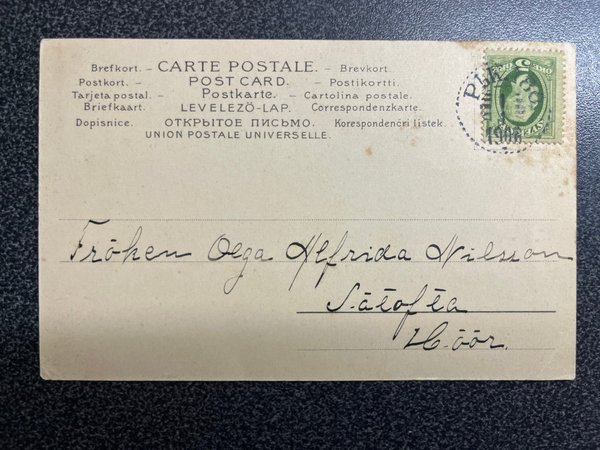 Brefkort. – CARTE POSTALE. – Brevkort.
Postkort. – POST CARD. – Postikortti.
Tarjeta postal. – Postkarte. – Cartolina postale.
Briefkaart. LEVELEZÖ-LAP. Correspondenzkarte.
Dopisnice. ОТКРЫТОЕ ПИСЬМО. Korespondenčri listek.
UNION POSTALE UNIVERSELLE.
1906
Fröken Olga Alfrida Nilsson
Sätofta
Höör.